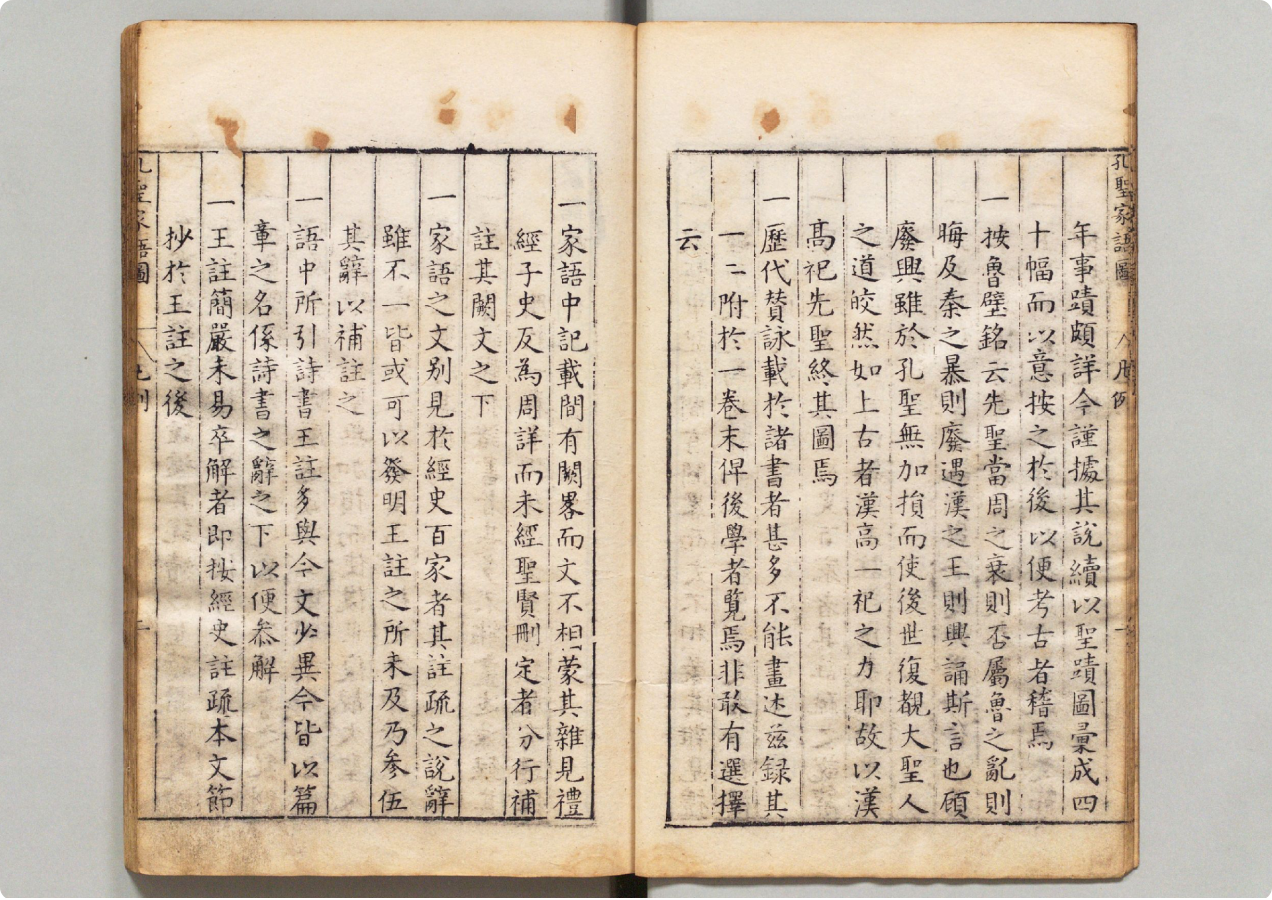 孔聖家語圖 凡例 一
年事蹟頗詳今謹據其說續以聖蹟圖彙成四
十幅而以意按之於後以便考古者稽焉
一按魯壁銘云先聖當周之衰則否屬魯之亂則
晦及秦之暴則廢遇漢之王則興誦斯言也顧
廢興雖於孔聖無加損而使後世復覩大聖人
之道皎然如上古者漢高一祀之力耶故以漢
高祀先聖終其圖焉
一歷代賛詠載於諸書者甚多不能畫述兹録其
一二附於一卷末俾後學者覧焉非敢有選擇
云
一家語中記載間有闕畧而文不相蒙其雜見禮
經子史反為周詳而未經聖賢刪定者分行補
註其闕文之下
一家語之文别見於經史百家者其註疏之說辭
雖不一皆或可以發明王註之所未及乃參伍
其辭以補註之
一語中所引詩書王註多與今文少異今皆以篇
章之名係詩書之辭之下以便叅解
一王註簡嚴未易卒解者即按經史註疏本文節
抄於王註之後
孔聖家語圖